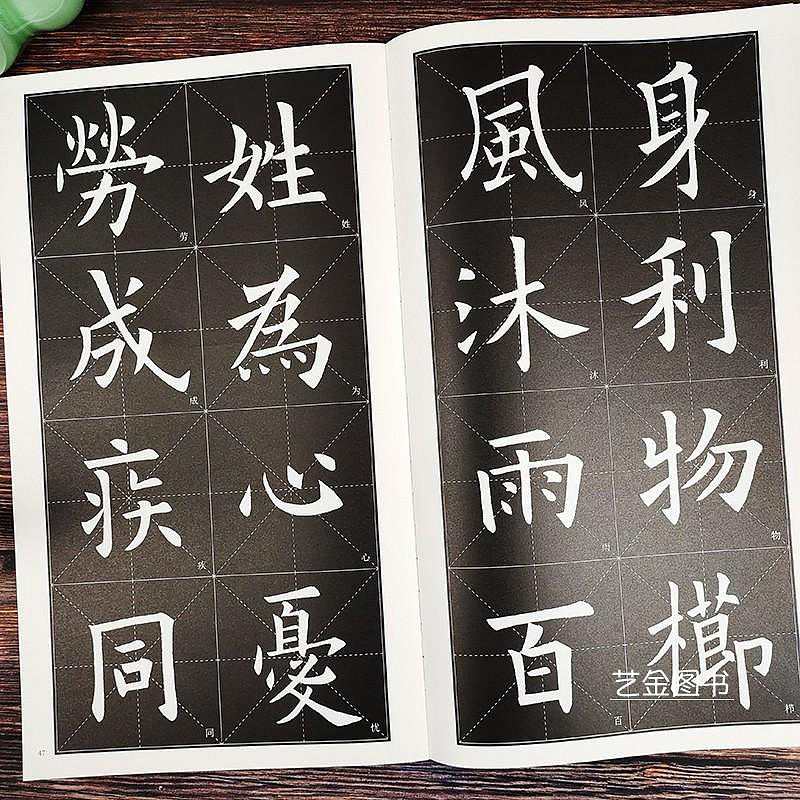 身利物櫛
身
利
物
栉
風沐雨百
风
沐
雨
百
姓為心憂
姓
为
心
忧
勞成疾同
劳
成
疾
同
47
艺金图书